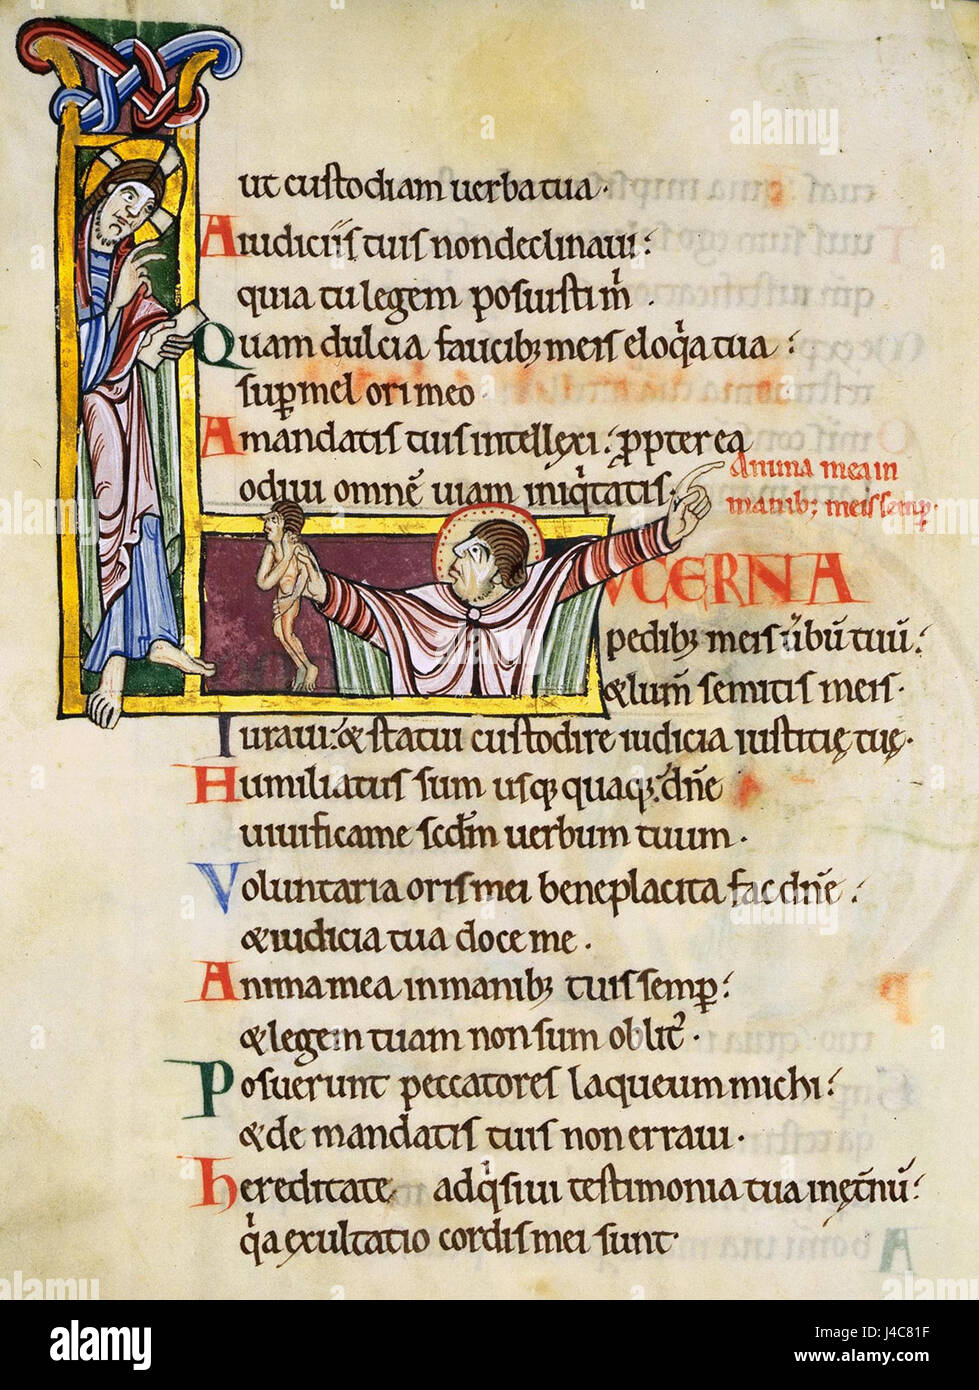 ut custodiam uerba tua.
A iudiciis tuis non declinaui:
quia tu legem posuisti m̄.
Quam dulcia faucib; meis eloq̄a tua:
sup̄ mel ori meo.
A mandatis tuis intellexi: ꝓpterea
odiui omnē uiam iniq̄tatis.
Anima mea in
manib; meis semp̄.
LUCERNA
pedib; meis ūbū tuū:
& lum̄ semitis meis.
Iuraui: & statui custodire iudicia iustitię tuę.
Humiliatus sum usq; quaq; dn̄e
uiuifica me scd̄m uerbum tuum.
Voluntaria oris mei beneplacita fac dn̄e:
& iudicia tua doce me.
Anima mea in manib; tuis semp̄:
& legem tuam non sum oblit᾿.
Posuerunt peccatores laqueum michi:
& de mandatis tuis non erraui.
hereditate adq̄siui testimonia tua inęt̄nū:
q̄a exultatio cordis mei sunt
alamy
J4C81F
www.alamy.com